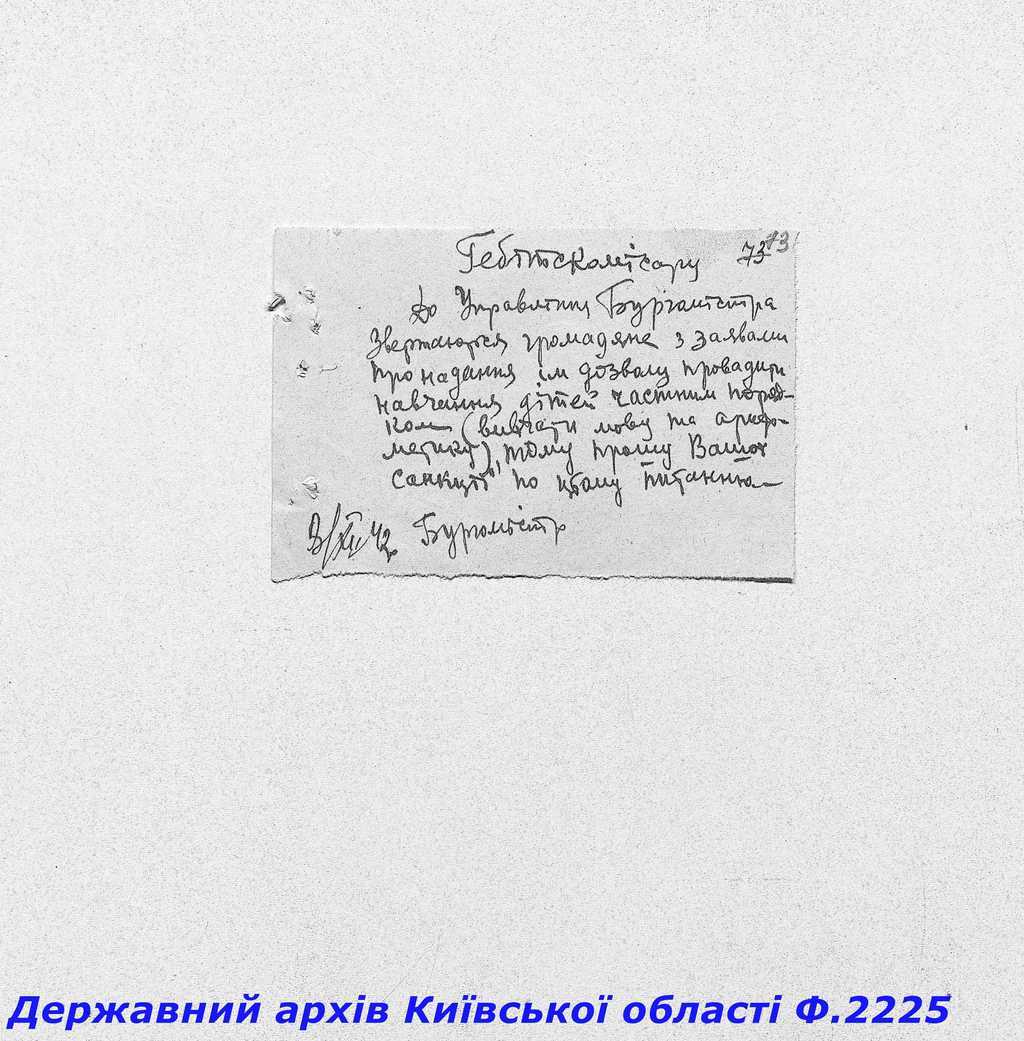 73
Гебітскомісару 73
До Управління Бургомістра
Звертаються громадяне з заявами
про надання їм дозволу провадити
навчання дітей частним поряд-
ком (вивчати мову та ариф-
метику), тому прошу Вашої
санкції по цьому питанню
3/XII 42 Бургомістр
Державний архів Київської області Ф.2225